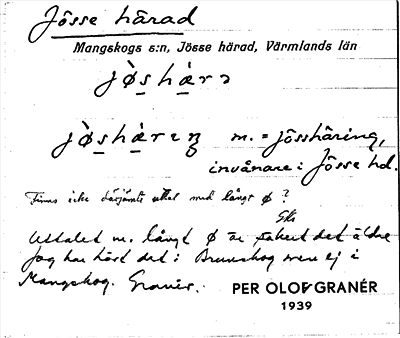 Jösse härad
Mangskogs s:n, Jösse härad, Värmlands län
jø̀shæ̀rə
jø̀shæ̀reŋ m. = jösshäring,
invånare i Jösse hd.
Finns icke därjämte uttal med långt ø?
Gks
Uttalet m. långt ø är säkert det äldre
Jag har hört det i Brunskog men ej i
Mangskog. Granér.
PER OLOF GRANÉR
1939